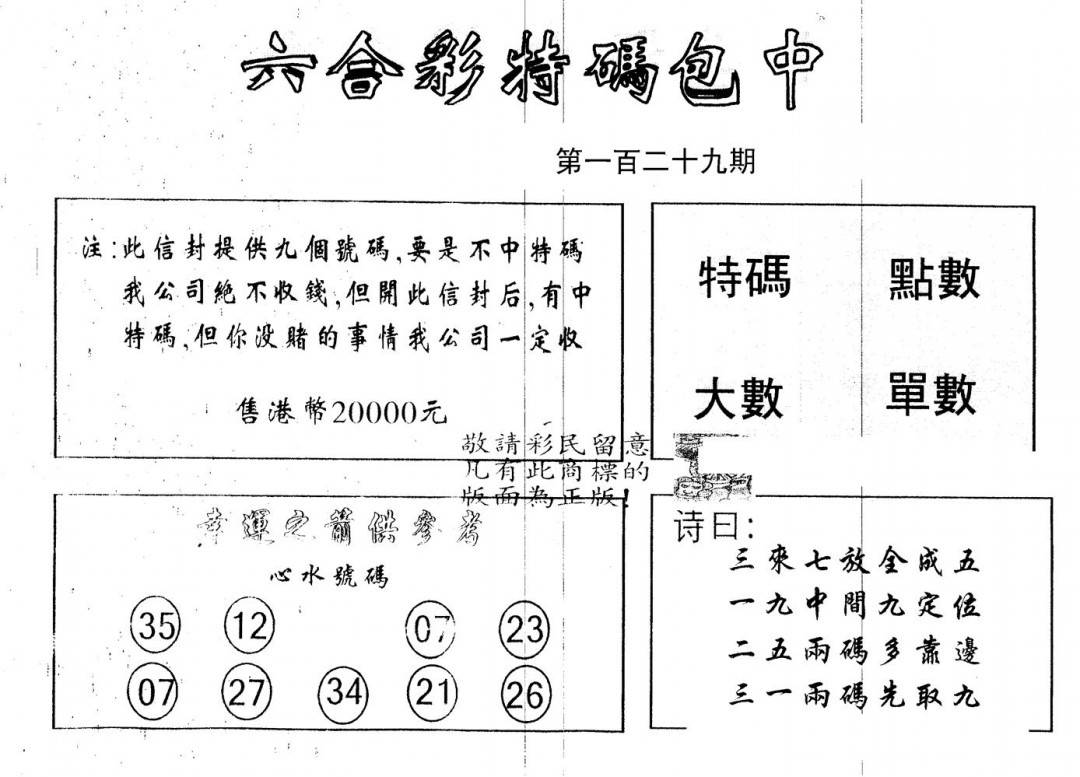 六合彩特碼包中
第一百二十九期
注:此信封提供九個號碼,要是不中特碼
我公司絕不收錢,但開此信封后,有中
特碼,但你没賭的事情我公司一定收
售港幣20000元
特碼 點數
大數 單數
敬請彩民留意
凡有此商標的
版面為正版!
幸運之箭供參考
心水號碼
35 12 07 23
07 27 34 21 26
诗曰:
三來七放全成五
一九中間九定位
二五兩碼多靠邊
三一兩碼先取九